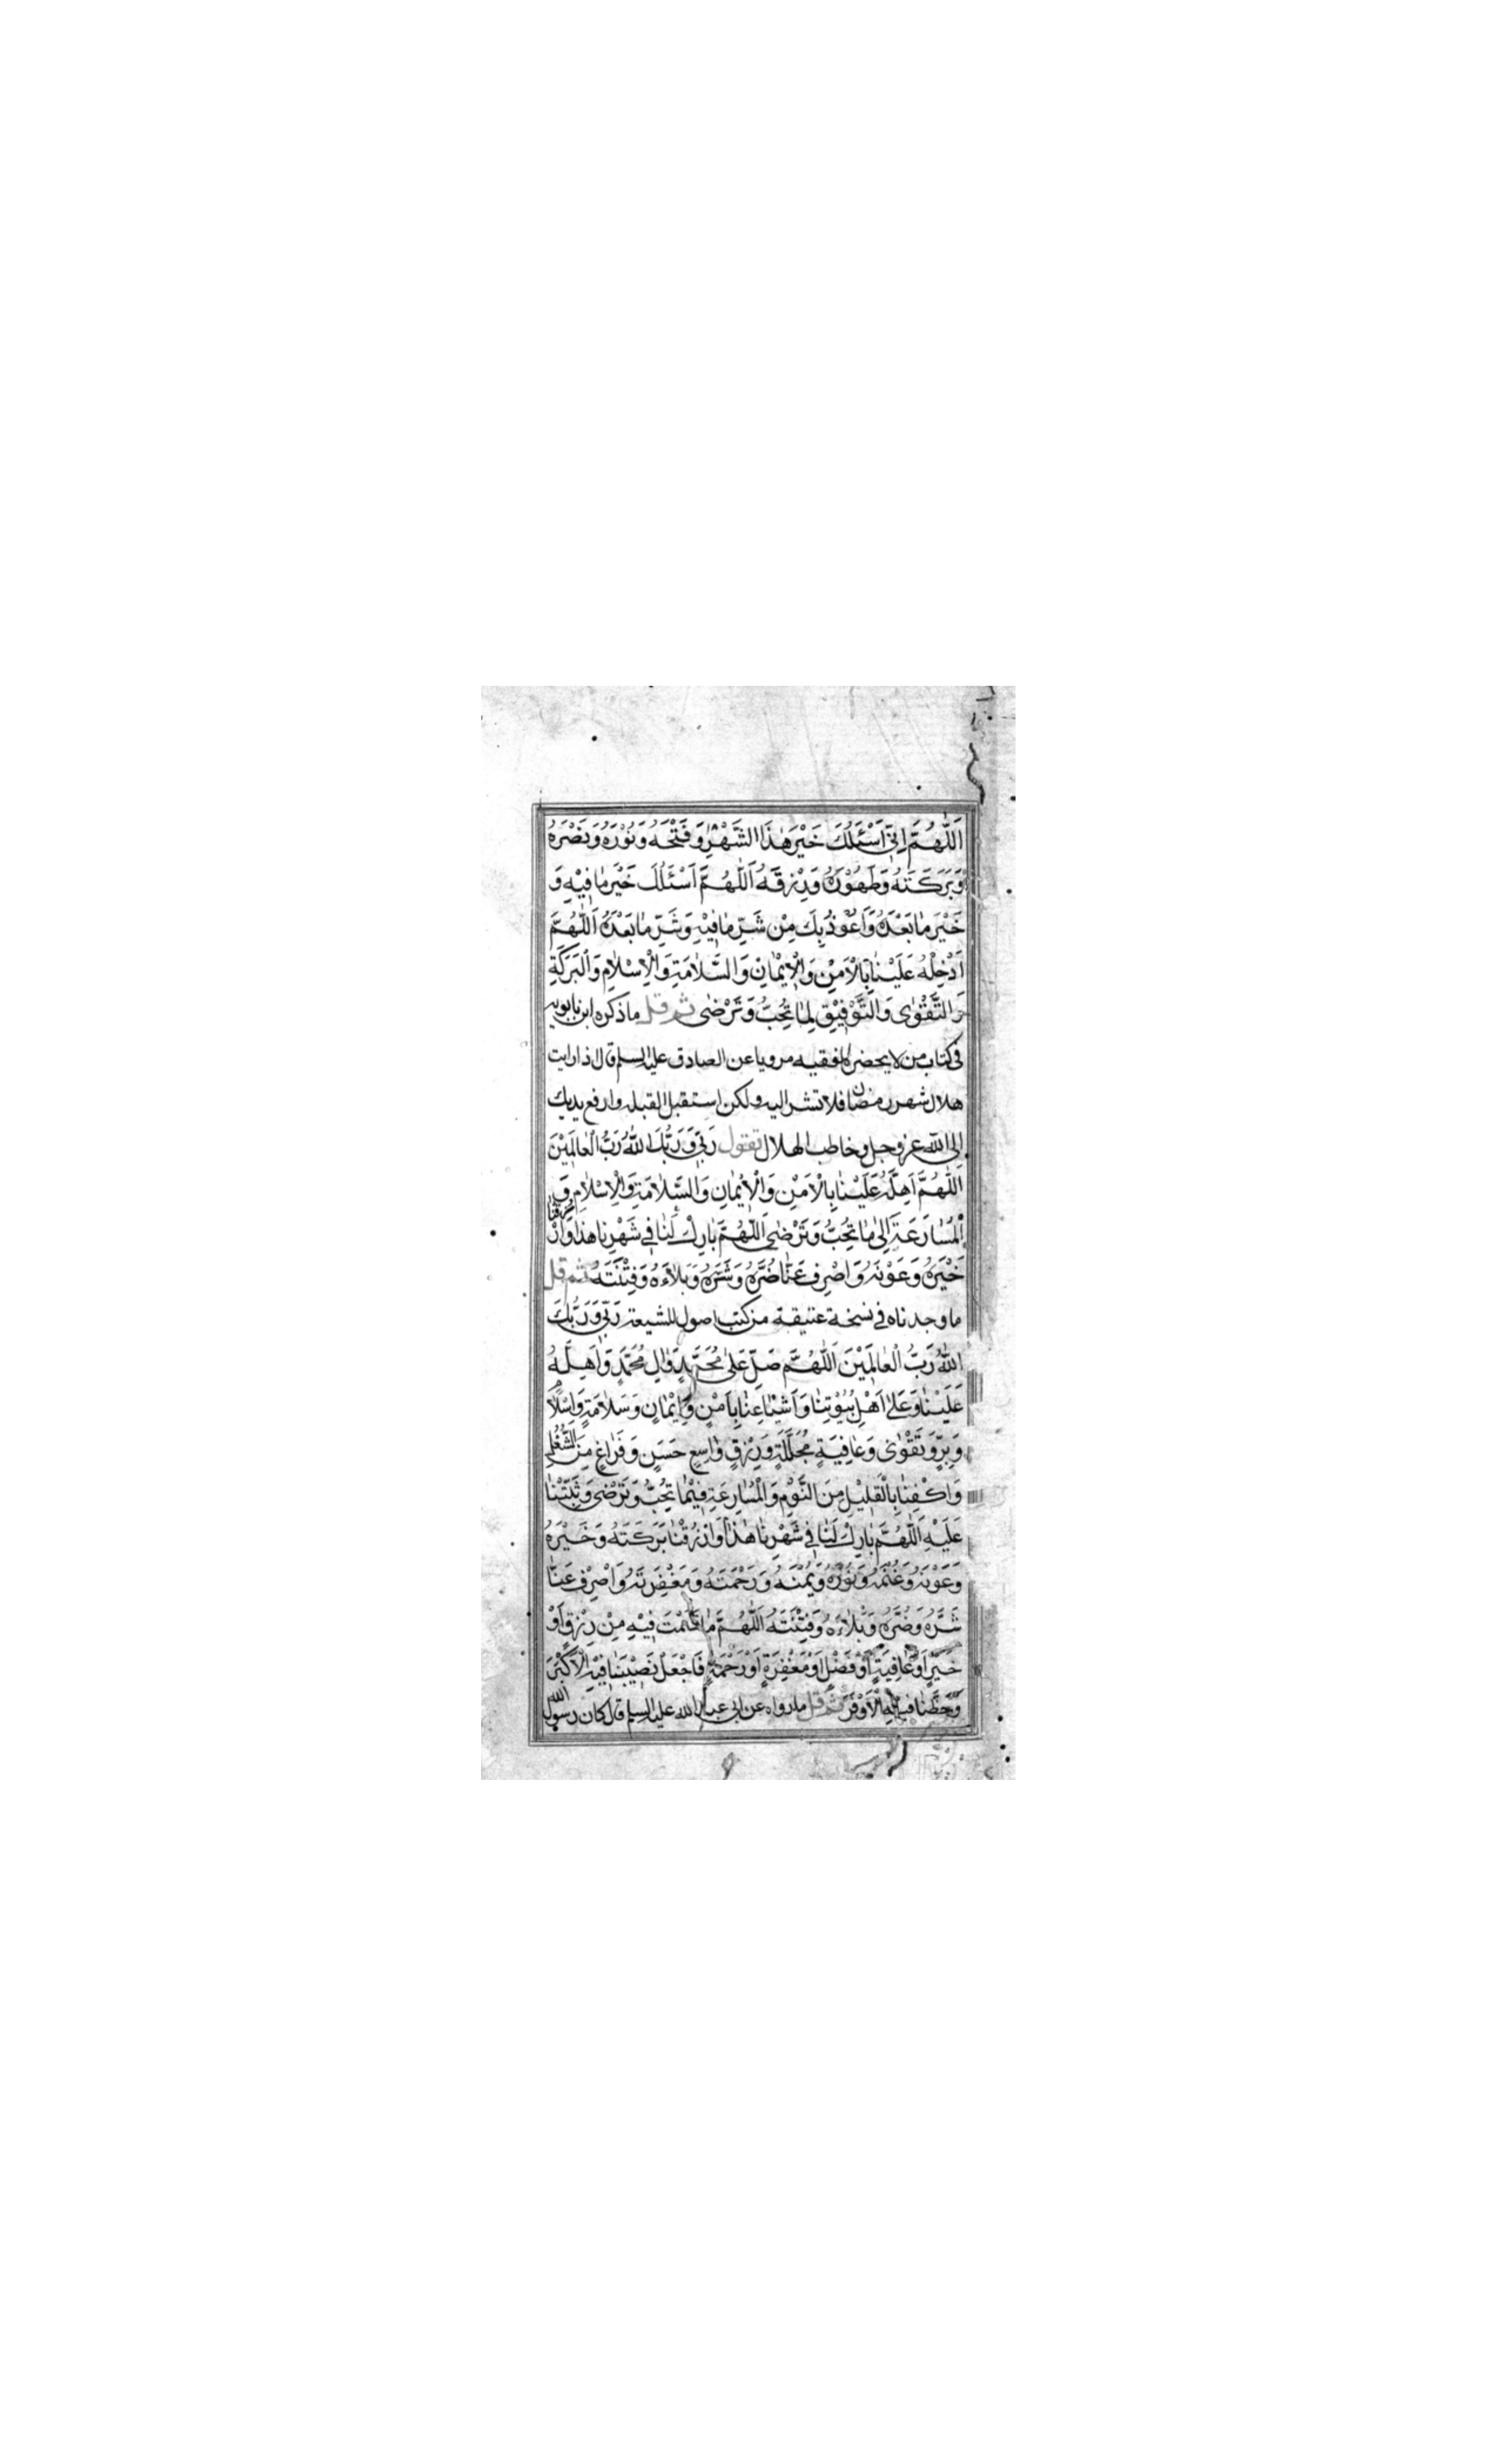 اَللّٰهُمَّ اِنّٖى اَسْئَلُكَ خَيْرَ هٰذَا الشَّهْرِ وَ فَتْحَهُ وَ نُوْرَهُ وَ نَصْرَهُ
وَ بَرَكَتَهُ وَ طَهُوْرَهُ وَ رِزْقَهُ اَللّٰهُمَّ اَسْئَلُكَ خَيْرَ مٰا فِيْهِ وَ
خَيْرَ مٰا بَعْدَهُ وَ اَعُوْذُ بِكَ مِنْ شَرِّ مٰا فِيْهِ وَ شَرِّ مٰا بَعْدَهُ اَللّٰهُمَّ
اَدْخِلْهُ عَلَيْنٰا بِالْاَمْنِ وَ الْاِيْمٰانِ وَ السَّلٰامَةِ وَ الْاِسْلٰامِ وَ الْبَرَكَةِ
وَ التَّقْوٰى وَ التَّوْفِيْقِ لِمٰا تُحِبُّ وَ تَرْضٰى ثم قل ما ذكره ابن بابويه
فى كتاب من لا يحضره الفقيه مرويا عن الصادق عليه السلم قال اذا رايت
هلال شهر رمضان فلا تشر اليه ولكن استقبل القبلة وارفع يديك
الى الله عز وجل وخاطب الهلال تقول رَبّٖى وَ رَبُّكَ اللّٰهُ رَبُّ الْعٰالَمِيْنَ
اَللّٰهُمَّ اَهِلَّهُ عَلَيْنٰا بِالْاَمْنِ وَ الْاِيْمٰانِ وَ السَّلٰامَةِ وَ الْاِسْلٰامِ وَ
الْمُسٰارَعَةِ اِلٰى مٰا تُحِبُّ وَ تَرْضٰى اَللّٰهُمَّ بٰارِكْ لَنٰا فٖى شَهْرِنٰا هٰذٰا وَارْزُقْنٰا
خَيْرَهُ وَ عَوْنَهُ وَ اصْرِفْ عَنّٰا ضُرَّهُ وَ شَرَّهُ وَ بَلٰاءَهُ وَ فِتْنَتَهُ ثم قل
ما وجدناه فى نسخة عتيقة من كتب اصول الشيعة رَبّٖى وَ رَبُّكَ
اللّٰهُ رَبُّ الْعٰالَمِيْنَ اَللّٰهُمَّ صَلِّ عَلٰى مُحَمَّدٍ وَ اٰلِ مُحَمَّدٍ وَ اَهِلَّهُ
عَلَيْنٰا وَ عَلٰى اَهْلِ بُيُوْتِنٰا وَ اَشْيٰاعِنٰا بِاَمْنٍ وَ اِيْمٰانٍ وَ سَلٰامَةٍ وَ اِسْلٰامٍ
وَ بِرٍّ وَ تَقْوٰى وَ عٰافِيَةٍ مُجَلَّلَةٍ وَ رِزْقٍ وٰاسِعٍ حَسَنٍ وَ فَرٰاغٍ مِنَ الشُّغْلِ
وَ اكْفِنٰا بِالْقَلِيْلِ مِنَ النَّوْمِ وَ الْمُسٰارِعَةِ فِيْمٰا تُحِبُّ وَ تَرْضٰى وَ ثَبِّتْنٰا
عَلَيْهِ اَللّٰهُمَّ بٰارِكْ لَنٰا فٖى شَهْرِنٰا هٰذٰا وَ ارْزُقْنٰا بَرَكَتَهُ وَ خَيْرَهُ
وَ عَوْنَهُ وَ غُنْمَهُ وَ نُوْرَهُ وَ يُمْنَهُ وَ رَحْمَتَهُ وَ مَغْفِرَتَهُ وَ اصْرِفْ عَنّٰا
شَرَّهُ وَ ضُرَّهُ وَ بَلٰاءَهُ وَ فِتْنَتَهُ اَللّٰهُمَّ مٰا قَسَمْتَ فِيْهِ مِنْ رِزْقٍ اَوْ
خَيْرٍ اَوْ عٰافِيَةٍ اَوْ فَضْلٍ اَوْ مَغْفِرَةٍ اَوْ رَحْمَةٍ فَاجْعَلْ نَصِيْبَنٰا فِيْهِ الْاَكْبَرَ
وَ حَظَّنٰا فِيْهِ الْاَوْفَرَ ثم قل ما رواه عن ابى عبد الله عليه السلم قال كان رسول الله